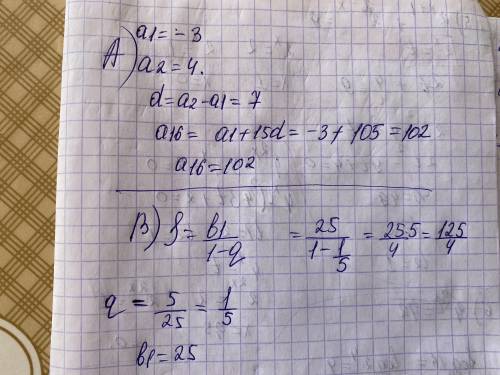 A) a1 = -3
a2 = 4.
d = a2 - a1 = 7
a16 = a1 + 15d = -3 + 105 = 102
a16 = 102
B) S = b1/(1-q) = 25/(1 - 1/5) = 25·5/4 = 125/4
q = 5/25 = 1/5
b1 = 25